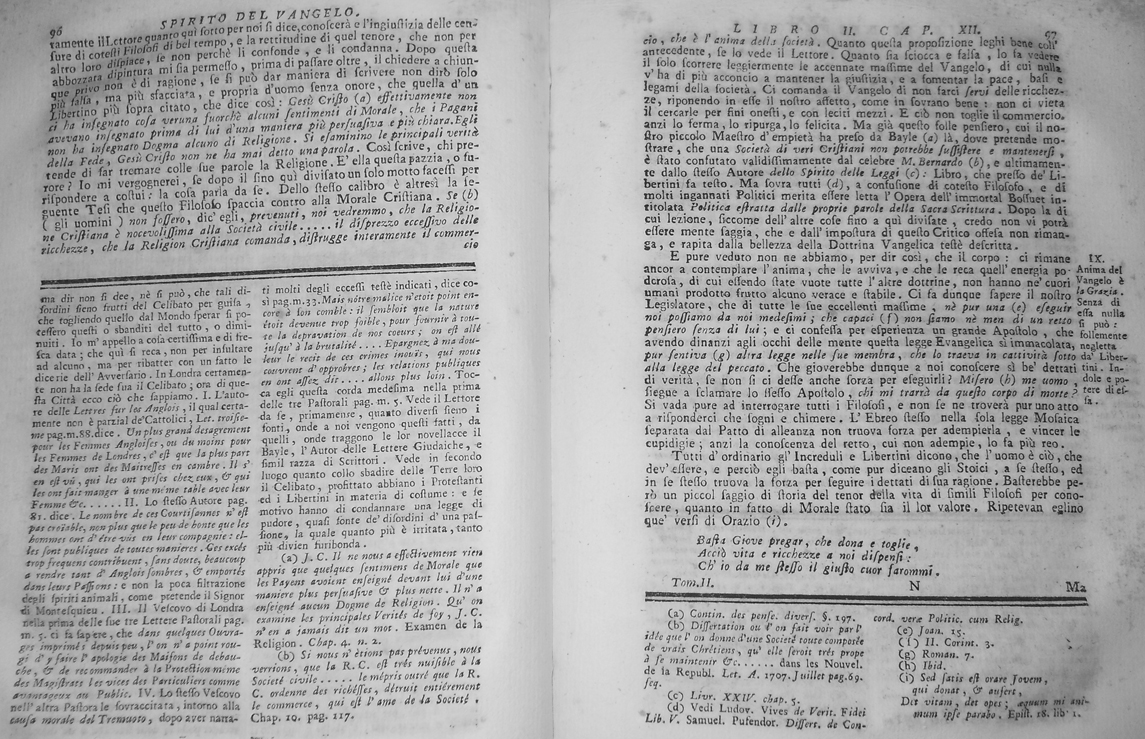 96
SPIRITO DEL VANGELO.
vamente il Lettore quanto qui sotto per noi si dice, conoscerà e l'ingiustizia delle cen-
sure di cotesti Filosofi di bel tempo, e la rettitudine di quel tenore, che non per
altro loro dispiace, se non perchè li confonde, e li condanna. Dopo questa
abbozzata dipintura mi sia permesso, prima di passare oltre, il chiedere a chiun-
que privo non è di ragione, se si può dar maniera di scrivere non dirò solo
più falsa, ma più sfacciata, e propria d'uomo senza onore, che quella d'un
Libertino più sopra citato, che dice così: Gesù Cristo (a) effettivamente non
ci ha insegnato cosa veruna fuorchè alcuni sentimenti di Morale, che i Pagani
avevano insegnato prima di lui d'una maniera più persuasiva e più chiara. Egli
non ha insegnato Dogma alcuno di Religione. Si esaminino le principali verità
della Fede, Gesù Cristo non ne ha mai detto una parola. Così scrive, chi pre-
tende di far tremare colle sue parole la Religione. E' ella questa pazzia, o fu-
rore? Io mi vergognerei, se dopo il fino quì divisato un solo motto facessi per
rispondere a costui: la cosa parla da se. Dello stesso calibro è altresì la se-
guente Tesi che questo Filosofo spaccia contro alla Morale Cristiana. Se (b)
( gli uomini ) non fossero, dic' egli, prevenuti, noi vedremmo, che la Religio-
ne Cristiana è nocevolissima alla Società Civile..... il disprezzo eccessivo delle
ricchezze, che la Religion Cristiana comanda, distrugge interamente il commer-
cio
ma dir non si dee, nè si può, che tali di-
sordini sieno frutti del Celibato per guisa,
che togliendo quello dal Mondo sperar si po-
tessero questi o sbanditi del tutto, o dimi-
nuiti. Io m' appello a cosa certissima e di fre-
sca data; che quì si reca, non per insultare
ad alcuno, ma per ribatter con un fatto le
dicerie dell' Avversario. In Londra certamen-
te non ha la sede sua il Celibato; ora di que-
sta Città ecco ciò che sappiamo. I. L'auto-
re delle Lettres sur les Anglois, il qual certa-
mente non è parzial de'Cattolici, Let. troisie-
me pag.m.88.dice. Un plus grand desagrement
pour les Femmes Angloises, ou du moins pour
les Femmes de Londres, c' est que la plus part
des Maris ont des Maitresses en cambre. Il s'
en est vû, qui les ont prises chez eux, & qui
les ont fait manger à une même table avec leur
Femme &c...... II. Lo stesso Autore pag.
81. dice. Le nombre de ces Courtisannes n' est
pas croiable, non plus que le peu de honte que les
hommes ont d'être vûs en leur compagnie: el-
les sont publiques de toutes manieres. Ces excés
trop frequens contribuent, sans doute, beaucoup
a rendre tant d' Anglois sombres, & emportés
dans leurs Passions: e non la poca filtrazione
degli spiriti animali, come pretende il Signor
di Montesquieu. III. Il Vescovo di Londra
nella prima delle sue tre Lettere Pastorali pag.
m. 5. ci fa sapere, che dans quelques Ouvra-
ges imprimés depuis peu, l' on n' a point rou-
gi d' y faire l' apologie des Maisons de debau-
che, & de recommander à la Protection même
des Magistrats les vices des Particuliers comme
avantageux au Public. IV. Lo stesso Vescovo
nell' altra Pastorale sovraccitata, intorno alla
causa morale del Tremuoto, dopo aver narra-
ti molti degli eccessi testè indicati, dice co-
sì pag.m.33. Mais nôtre malice n'etoit point en-
core à son comble: il sembloit que la nature
étoit devenue trop foible, pour fournir à tou-
te la depravation de nos coeurs; on est allé
jusqu' à la brutalité.... Epargnez à ma dou-
leur le recit de ces crimes inouis, qui nous
couvrent d'opprobres; les relations publiques
en ont assez dit..... allons plus loin. Toc-
ca egli questa corda medesima nella prima
delle tre Pastorali pag. m. 5. Vede il Lettore
da se, primamente, quanto diversi sieno i
fonti, onde a noi vengono questi fatti, da
quelli, onde traggono le lor novellacce il
Bayle, l' Autor delle Lettere Giudaiche, e
simil razza di Scrittori. Vede in secondo
luogo quanto collo sbadire delle Terre loro
il Celibato, profittato abbiano i Protestanti
ed i Libertini in materia di costume: e se
motivo hanno di condannare una legge di
pudore, quasi fonte de' disordini d' una pas-
sione, la quale quanto più è irritata, tanto
più divien furibonda.
(a) J. C. Il ne nous a effectivement rien
apris que quelques sentimens de Morale que
les Payens avoient enseigné devant lui d'une
maniere plus persuasive & plus nette. Il n' a
enseigné aucun Dogme de Religion. Qu' on
examine les principales Verités de foy, J. C.
n' en a jamais dit un mot. Examen de la
Religion. Chap. 4. n. 2.
(b) Si nous n' êtions pas prévenus, nous
verrions, que la R. C. est très nuisible à la
Société civile..... le mépris outré que la R.
C. ordenne des richesses, détruit entiérement
le commerce, qui est l' ame de la Societé.
Chap. 10. pag. 117.
LIBRO II. CAP. XII.
97
cio, che è l'anima della società. Quanto questa proposizione leghi bene coll'
antecedente, se lo vede il Lettore. Quanto sia sciocca e falsa, lo fa vedere
il solo scorrere leggiermente le accennate massime del Vangelo, di cui nulla
v' ha di più acconcio a mantener la giustizia, e a fomentar la pace, basi e
legami della società. Ci comanda il Vangelo di non farci servi delle ricchez-
ze, riponendo in esse il nostro affetto, come in sovrano bene: non ci vieta
il cercarle per fini onesti, e con leciti mezzi. E ciò non toglie il commercio,
anzi lo ferma, lo ripurga, lo felicita. Ma già questo folle pensiero, cui il no-
stro piccolo Maestro d'empietà ha preso da Bayle (a) là, dove pretende mo-
strare, che una Società di veri Cristiani non potrebbe sussistere e mantenersi,
è stato confutato validissimamente dal celebre M. Bernardo (b), e ultimamen-
te dallo stesso Autore dello Spirito delle Leggi (c): Libro, che presso de' Li-
bertini fa testo. Ma sovra tutti (d), a confusione di cotesto Filosofo, e di
molti ingannati Politici merita essere letta l' Opera dell' immortal Bossuet in-
titolata Politica estratta dalle proprie parole della Sacra Scrittura. Dopo la di
cui lezione, siccome dell' altre cose fino a quì divisate, credo non vi potrà
essere mente saggia, che e dall' impostura di questo Critico offesa non riman-
ga, e rapita dalla bellezza della Dottrina Vangelica testè descritta.
E pure veduto non ne abbiamo, per dir così, che il corpo: ci rimane
ancor a contemplare l' anima, che le avviva, e che le reca quell' energia po-
derosa, di cui essendo state vuote tutt' l' altre dottrine, non hanno ne' cuori
umani prodotto frutto alcuno verace e stabile. Ci fa dunque sapere il nostro
Legislatore, che di tutte le sue eccellenti massime, nè pur una (e) eseguir
noi possiamo da noi medesimi; che capaci (f) non siamo nè men di un retto
pensiero senza di lui; e ci confessa per esperienza un grande Apostolo, che
avendo dinanzi agli occhi delle mente questa legge Evangelica sì immacolata,
pur sentiva (g) altra legge nelle sue membra, che lo traeva in cattività sotto
alla legge del peccato. Che gioverebbe dunque a noi conoscere sì be' dettati
di verità, se non ci desse anche forza per eseguirli? Misero (h) me uomo,
siegue a sclamare lo stesso Apostolo, chi mi trarrà da questo corpo di morte?
Si vada pure ad interrogare tutti i Filosofi, e non se ne troverà pur uno atto
a risponderci che sogni e chimere. L' Ebreo stesso nella sola legge Mosaica
separata dal Patto di alleanza non truova forza per adempierla, e vincere le
cupidigie; anzi la conoscenza del retto, cui non adempie, lo fa più reo.
IX.
Anima del
Vangelo è
la Grazia.
Senza di
essa nulla
si può:
follemente
neglettta
da' Liber-
tini. In-
dole e po-
tere di es-
sa.
Tutti d' ordinario gl' Increduli e Libertini dicono, che l' uomo è ciò, che
dev' essere, e perciò egli basta, come pur diceano gli Stoici, a se stesso, ed
in se stesso truova la forza per seguire i dettati di sua ragione. Basterebbe pe-
rò un piccol saggio di storia del tenor della vita di simili Filosofi per cono-
scere, quanto in fatto di Morale stato sia il lor valore. Ripetevan eglino
que' versi di Orazio (i).
Basta Giove pregar, che dona e toglie,
Acciò vita e ricchezze a noi dispensi:
Ch' io da me stesso il giusto cuor farommi.
Tom.II.
N
Ma
(a) Contin. des pense. divers. §. 197.
(b) Dissertation ou l' on fait voir par l'
idée que l' on donne d'une Societé toute composée
de vrais Chrétiens, qu' elle seroit très prope
à se maintenir &c..... dans les Nouvel.
de la Republ. Let. A. 1707. Juillet pag.69.
seq.
(c) Livr. XXIV. chap. 5.
(d) Vedi Ludov. Vives de Verit. Fidei
Lib. V. Samuel. Pufendor. Dissert. de Con-
cord. veræ Politic. cum Relig.
(e) Joan. 15.
(f) II. Corint. 3.
(g) Roman. 7.
(h) Ibid.
(i) Sed satis est orare Jovem,
qui donat, & aufert,
Det vitam, det opes; æquum mi ani-
mum ipse parabo. Epist. 18. lib. 1.